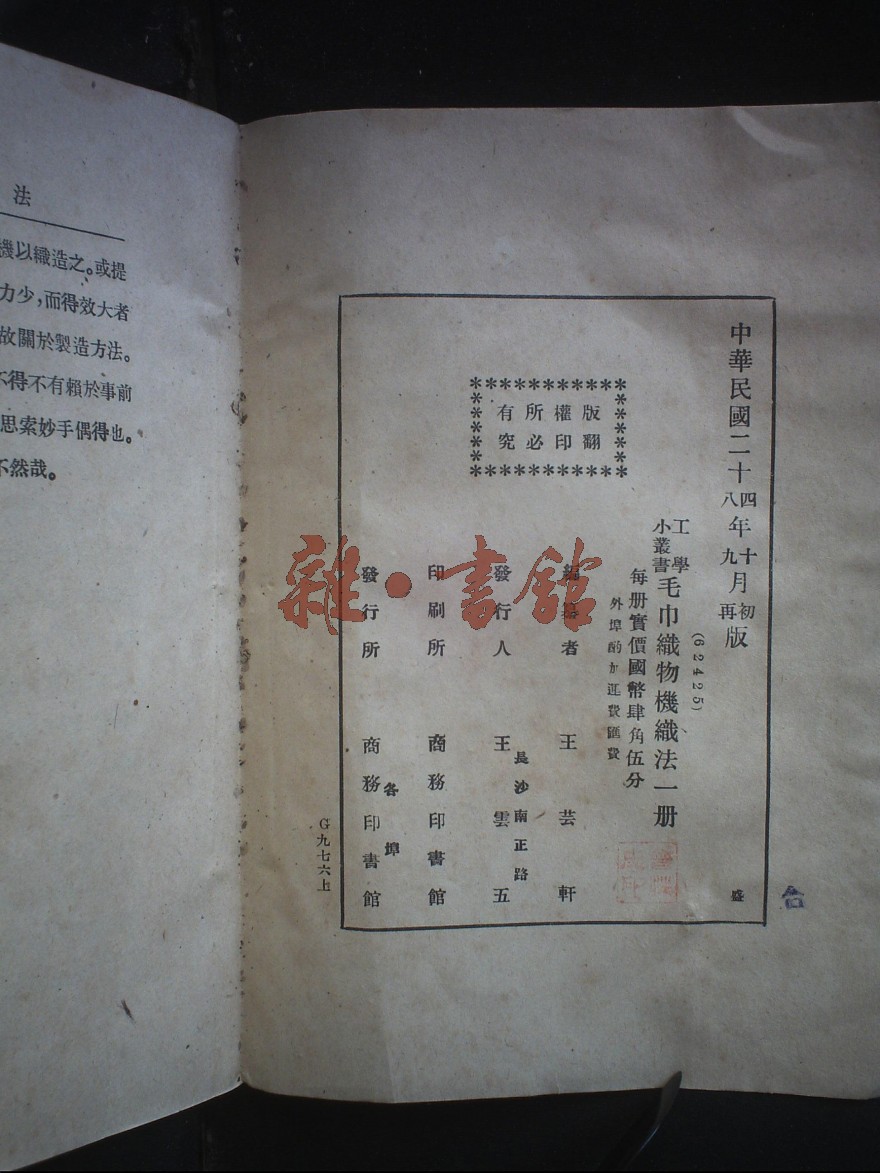 中華民國二十四年十月初版
八九再
(62425)
工學小叢書 毛巾織物機織法一册
每册實價國幣肆角伍分
外埠酌加運費匯費
版權所有
翻印必究
編纂者 王芸軒
發行人 王雲五
長沙南正路
印刷所 商務印書館
各埠
發行所 商務印書館
盛
G九七六上
雜·書館
法
機以織造之。或提
力少，而得效大者
故關於製造方法。
不得不有賴於事前
思索妙手偶得也。
不然哉。